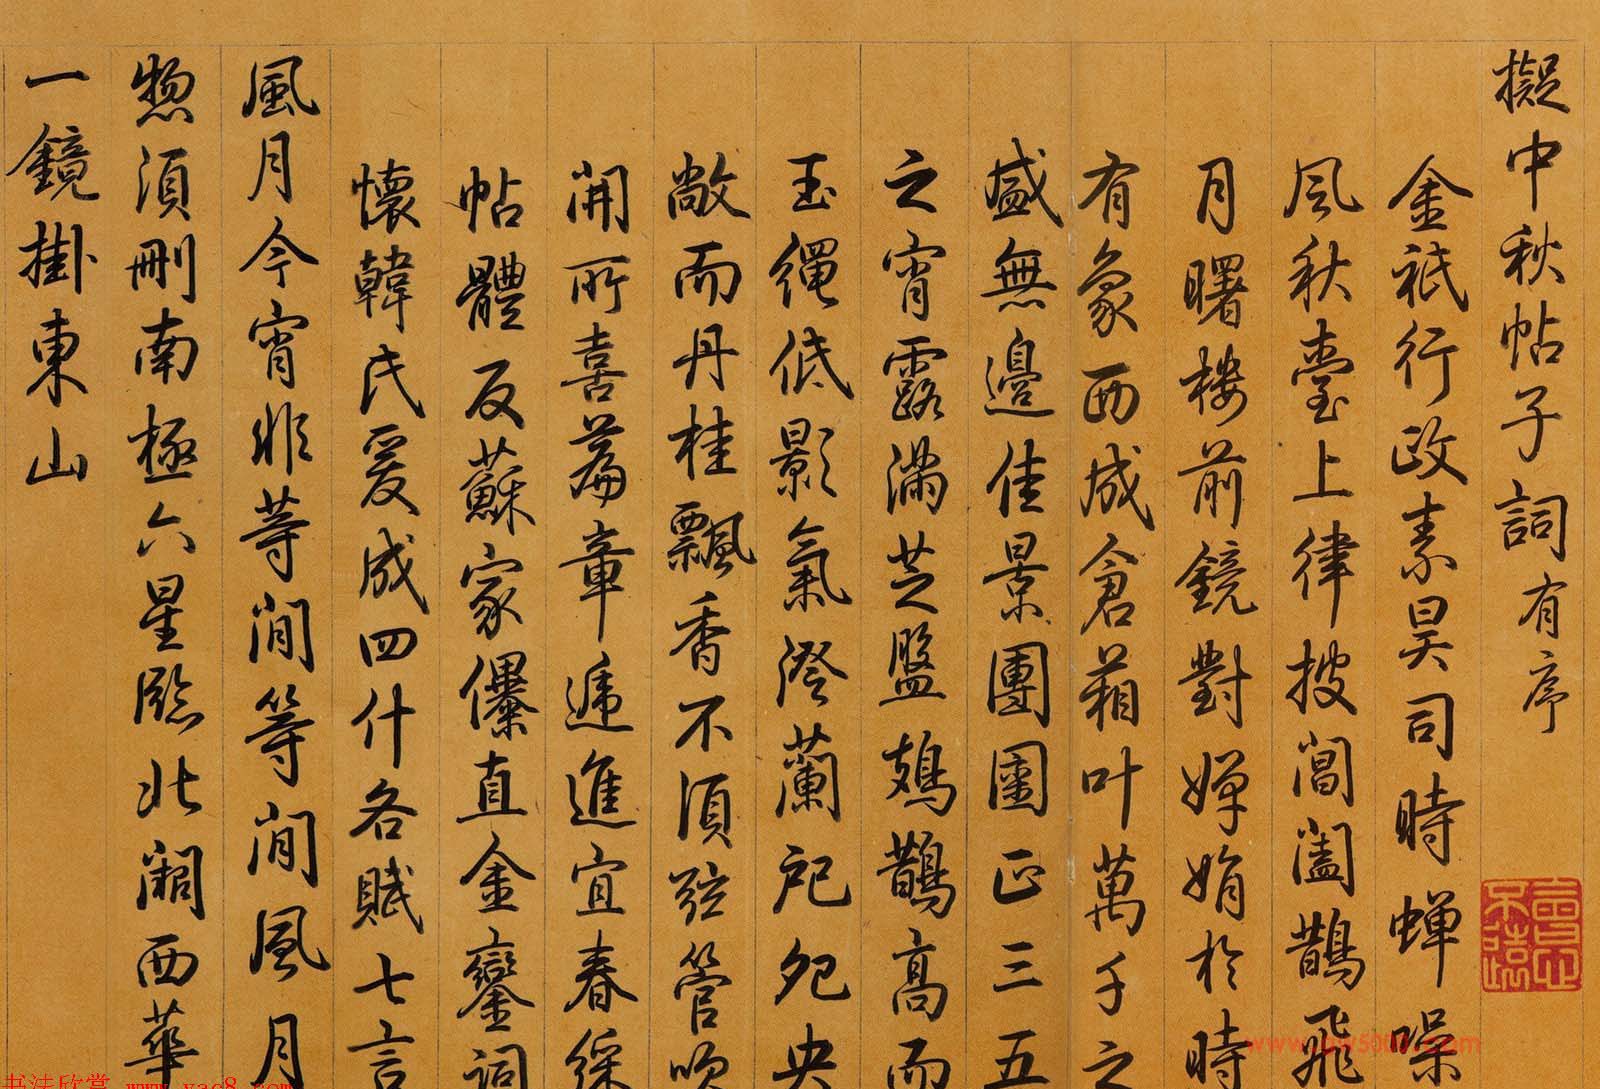 擬中秋帖子詞有序
金祇行政素昊司時蟬噪
風秋臺上律披閶闔鵲飛
月曙樓前鏡對嬋娟於時
有象西成倉箱叶萬千之
盛無邊佳景團圞正三五
之宵露滿芝盤鳷鵲高而
玉繩低影氣澄蘭戺夗央
敞而丹桂飄香不須弦管吹
開所喜篇章遞進宜春綵
帖體反蘇家儤直金鑾詞
懷韓氏爰成四什各賦七言
風月今宵非等閒等閒風月
惣須刪南極六星臨北闕西華
一鏡掛東山
书法欣赏 www.yac8.com